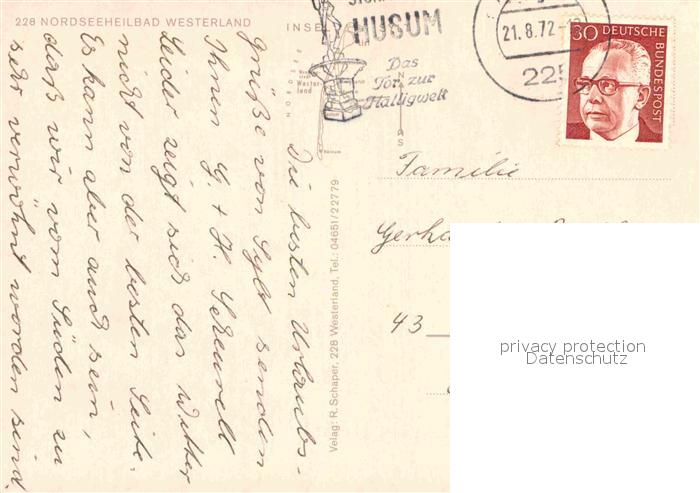 228 NORDSEEHEILBAD WESTERLAND
INSE
Die besten Urlaubs-
grüße von Sylt senden
Ihnen G. + H.
Leider zeigt sich das Wetter
nicht von der besten Seite.
Es kann aber auch sein,
daß wir vom Süden zu
sehr verwöhnt worden sind.
Verlag: R. Schaper, 228 Westerland, Tel.: 04651/22779
HUSUM
Das
Tor zur
Halligwelt
21.8.72
225
30 DEUTSCHE
BUNDESPOST
Familie
Gerha
43
privacy protection
Datenschutz